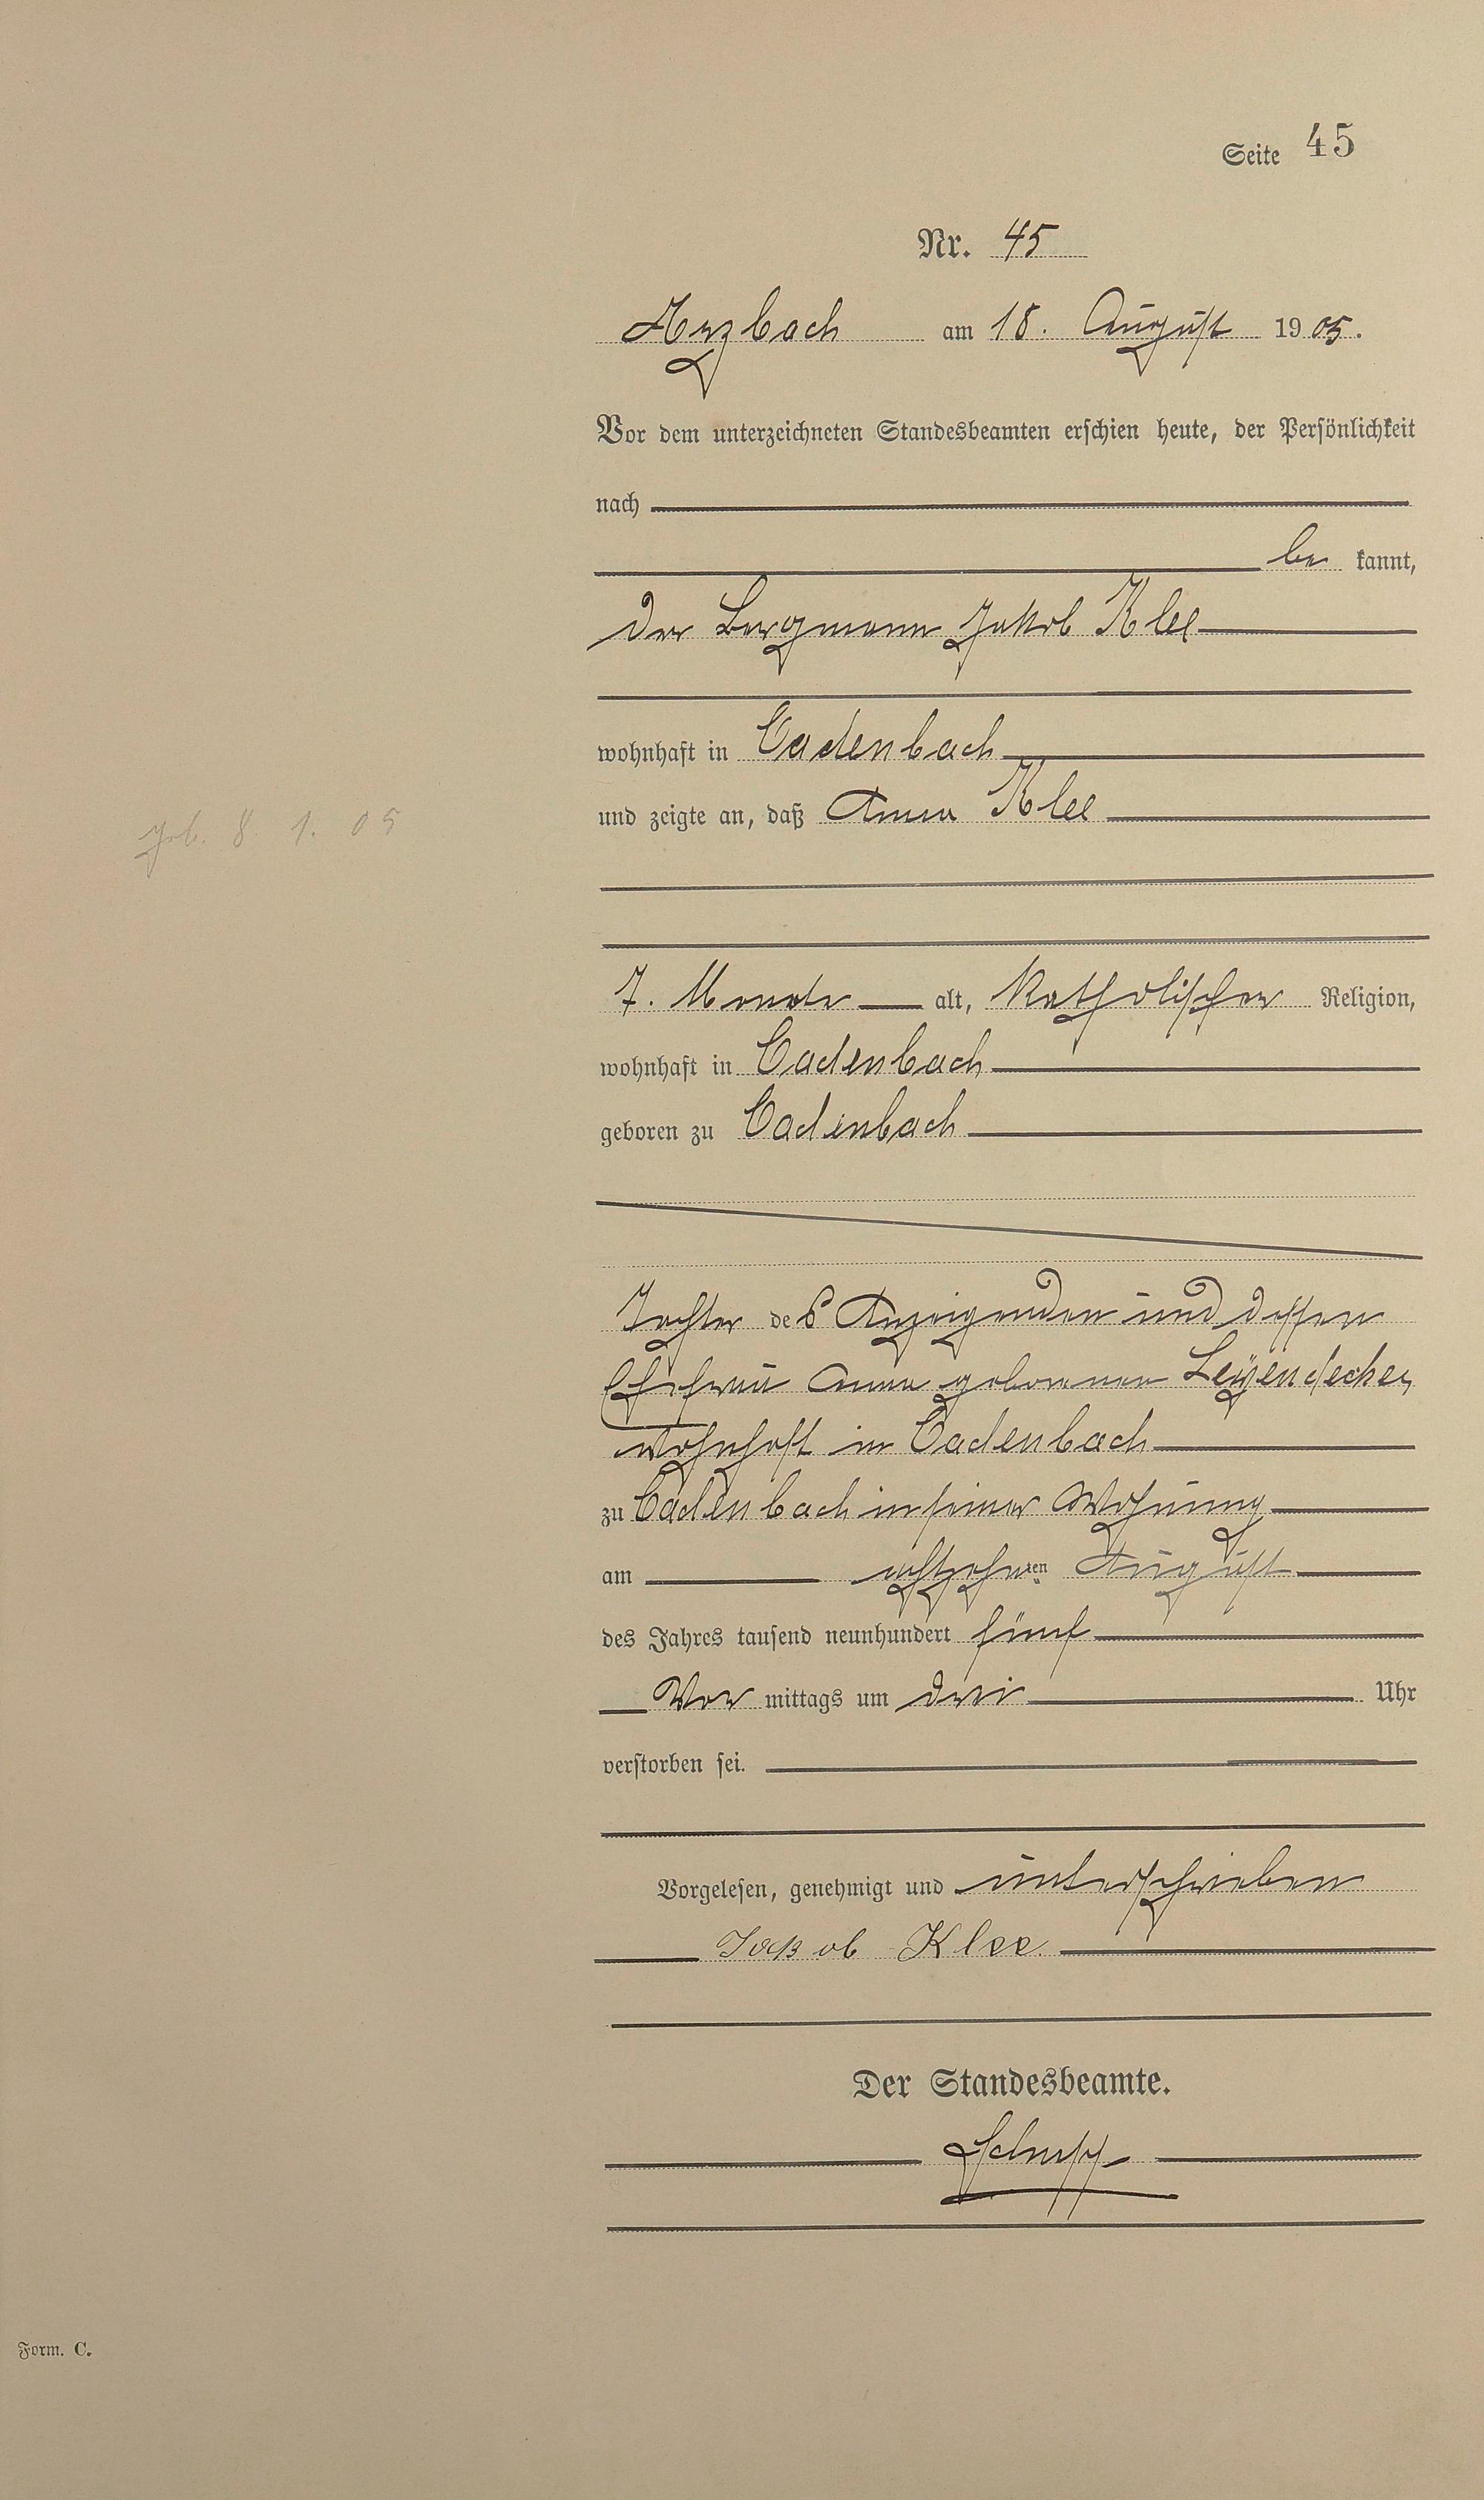 Seite 45
Nr. 45
Arzbach am 18. August 1905.
Vor dem unterzeichneten Standesbeamten erschien heute, der Persönlichkeit
nach
be kannt,
der Bergmann Jakob Klee
wohnhaft in Cadenbach
und zeigte an, daß Anna Klee
geb. 8 1. 05
7. Monate alt, katholischer Religion,
wohnhaft in Cadenbach
geboren zu Cadenbach
Tochter des Anzeigenden und dessen
Ehefrau Anna geborenen Leÿendecker
wohnhaft in Cadenbach
zu Cadenbach in seiner Wohnung
am achtzehnten August
des Jahres tausend neunhundert fünf
Vor mittags um drei Uhr
verstorben sei.
Vorgelesen, genehmigt und unterschrieben
Jakob Klee
Der Standesbeamte.
Schupp
Form. C.